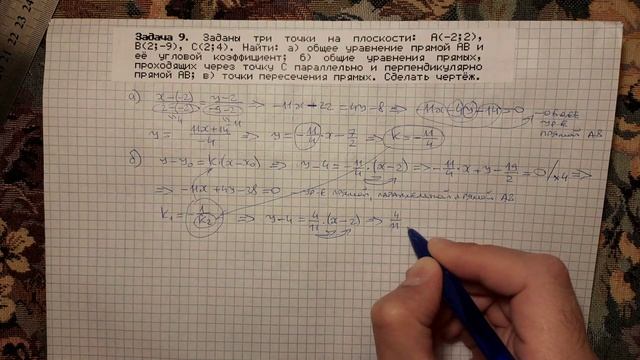 Задача 9. Заданы три точки на плоскости: A(-2;2),
B(2;-9), C(2;4). Найти: а) общее уравнение прямой AB и
её угловой коэффициент; б) общие уравнения прямых,
проходящих через точку C параллельно и перпендикулярно
прямой AB; в) точки пересечения прямых. Сделать чертёж.
а) (x-(-2))/(2-(-2)) = (y-2)/(-9-2) => -11x-22=4y-8 => -11x-4y-14=0 - общее
4 -11 ур-е
прямой AB
y = (11x+14)/-4 => y = -11/4·x - 7/2 => k = -11/4
б) y-y₀=k·(x-x₀) => y-4=-11/4·(x-2) => -11/4·x+y-19/2=0 /x4 =>
=> -11x+4y-28=0 - ур-е прямой, параллельной прямой AB
k₁=-1/k₂ => y-4=4/11·(x-2) => 4/11
21 22 23 24